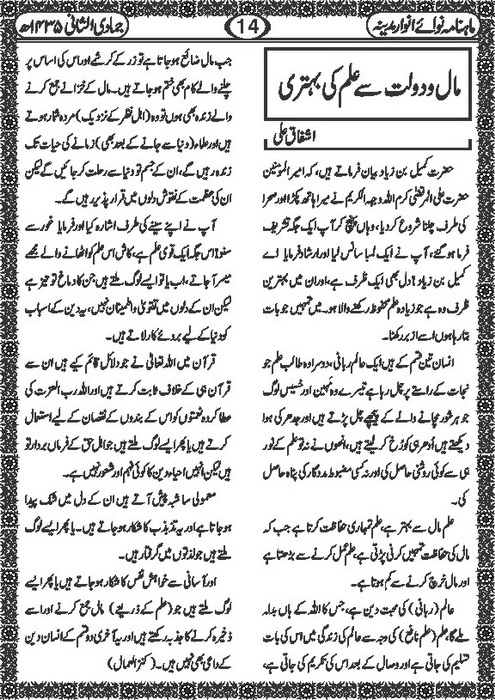 ماہنامہ نوائے انوار مدینہ
14
جمادی الثانی ۱۴۳۵ھ
مال و دولت سے علم کی بہتری
اشفاق علی
حضرت کمیل بن زیاد بیان فرماتے ہیں، کہ امیر المومنین
حضرت علی المرتضیٰ کرم اللہ وجہہ الکریم نے میرا ہاتھ پکڑا اور صحرا
کی طرف چلنا شروع کر دیا، وہاں پہنچ کر آپ ایک جگہ تشریف
فرما ہو گئے، آپ نے ایک لمبا سانس لیا اور ارشاد فرمایا اے
کمیل بن زیاد؟ دل بھی ایک ظرف ہے، اور ان میں بہترین
ظرف وہ ہے جو زیادہ علم محفوظ رکھنے والا ہو۔ میں تمہیں جو بات
بتا رہا ہوں اسے ازبر رکھنا۔
انسان تین قسم کے ہیں ایک عالم ربانی، دوسرا وہ طالب علم جو
نجات کے راستے پر چل رہا ہے تیسرے وہ کمین اور خسیس لوگ
جو ہر شور مچانے والے کے پیچھے چل پڑتے ہیں اور جدھر کی ہوا
دیکھتے ہیں اُدھر ہی کو رُخ کر لیتے ہیں، انھوں نے نہ تو علم کے نور
ہی سے کوئی روشنی حاصل کی اور نہ کسی مضبوط مددگار کی پناہ حاصل
کی۔
علم مال سے بہتر ہے، علم تمہاری حفاظت کرتا ہے جب کہ
مال کی حفاظت تمہیں کرنی پڑتی ہے، علم عمل کرنے سے بڑھتا ہے
اور مال خرچ کرنے سے کم ہوتا ہے۔
عالم (ربانی) کی محبت دین ہے، جس کا اللہ کے ہاں بدلہ
ملے گا علم (علم نافع) کی وجہ سے عالم کی زندگی میں اس کی بات
تسلیم کی جاتی ہے اور وصال کے بعد اس کی تکریم کی جاتی ہے
جب مال ضائع ہو جاتا ہے تو زر کے کرشمے اور اس کی اساس پر
چلنے والے کام بھی ختم ہو جاتے ہیں۔ مال کے خزانے جمع کرنے
والے زندہ بھی ہوں تو وہ (اہل نظر کے نزدیک) مردہ شمار ہوتے
ہیں اور علماء (دنیا سے جانے کے بعد بھی) زمانے کی حیات تک
زندہ رہیں گے، ان کے جسم تو دنیا سے رحلت کر جائیں گے لیکن
ان کی عظمت کے نقوش دلوں میں قرار پذیر ہیں گے۔
آپ نے اپنے سینے کی طرف اشارہ کیا اور فرمایا غور سے
سنو! اس جگہ ایک قوی علم ہے، کاش اس علم کو اٹھانے والے مجھے
میسر آ جاتے، اب یا تو ایسے لوگ ملتے ہیں جن کا دماغ تو تیز ہے
لیکن ان کے دلوں میں تقویٰ و اطمینان نہیں، یہ دین کے اسباب
کو دنیا کے لیے بروئے کار لاتے ہیں۔
قرآن میں اللہ تعالیٰ نے جو دلائل قائم کیے ہیں ان سے
قرآن ہی کے خلاف ثابت کرتے ہیں اور اللہ رب العزت کی
عطا کردہ نعمتوں کو اس کے بندوں کے نقصان کے لیے استعمال
کرتے ہیں یا پھر ایسے لوگ ملتے ہیں جو اہل حق کے فرماں بردار تو
ہیں لیکن انہیں احیاء دین کا کوئی فہم اور شعور نہیں ہے۔
معمولی سا شبہ پیش آتے ہیں ان کے دل میں شک پیدا
ہو جاتا ہے اور یہ تذبذب کا شکار ہو جاتے ہیں۔ یا پھر ایسے لوگ
ملتے ہیں جو لذتوں میں گرفتار ہیں۔
اور آسانی سے خواہش نفس کا شکار ہو جاتے ہیں یا پھر ایسے
لوگ ملتے ہیں جو (علم کے ذریعے) مال جمع کرنے اور اسے
ذخیرہ کرنے کا جذبہ رکھتے ہیں اور یہ آخری دو قسم کے انسان دین
کے داعی بھی نہیں ہیں۔ (کنز العمال)